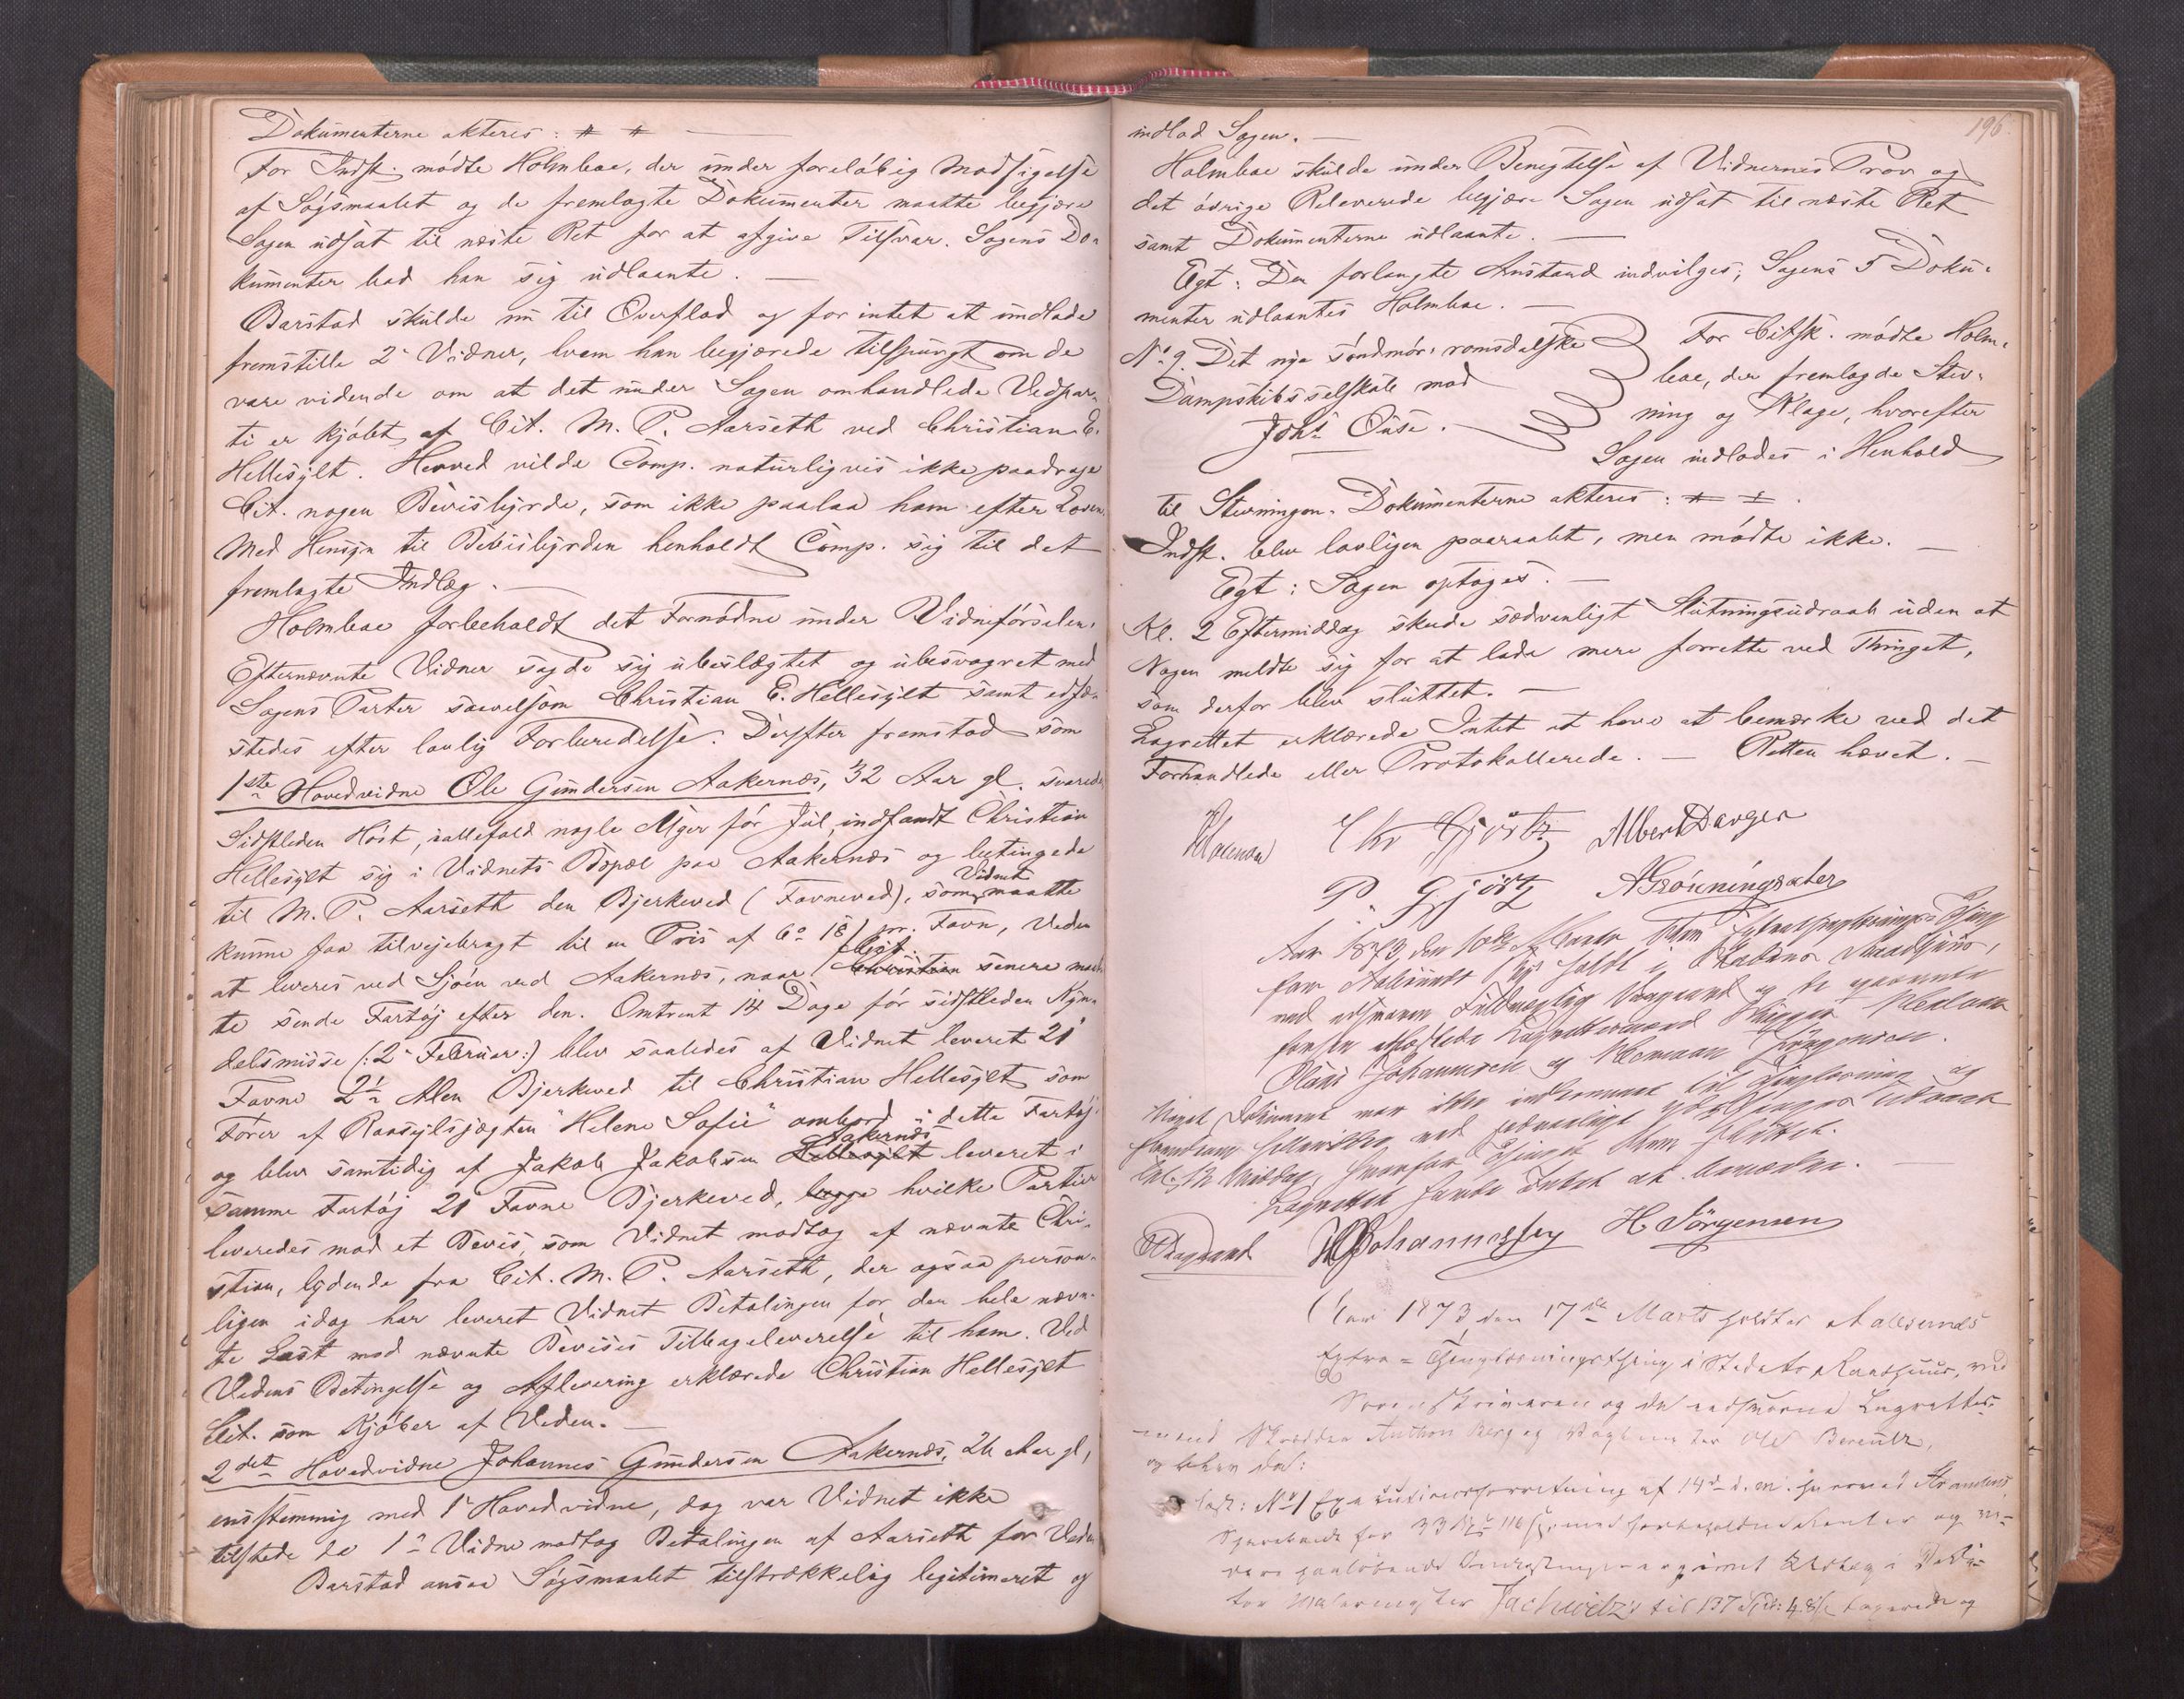 Dokumenterne akteres: # #
For Indst. mødte Holmboe, der under foreløbig Modsigelse
af Søgsmaalet og de fremlagte Dokumenter maatte begjære
Sagen udsat til næste Ret for at afgive Tilsvar. Sagens Do-
kumenter bad han sig udlaante.
Barstad skulde nu til Overflod og for intet at undlade
fremstille 2 Vidner, hvem han begjærede tilspurgt om de
vare vidende om at det under Sagen omhandlede Vedpar-
ti er kjøbt af Cit. M. P. Aarseth ved Christian E.
Hellesylt. Herved vilde Comp. naturligvis ikke paadrage
Cit. nogen Bevisbyrde, som ikke paalaa ham efter Loven.
Med Hensyn til Bevisbyrden henholdt Comp. sig til det
fremlagte Indlæg.
Holmboe forbeholdt det Fornødne under Vidneførselen.
Efternævnte Vidner sagde sig ubeslægtet og ubesvogret med
Sagens Parter saavelsom Christian E. Hellesylt samt edfæ-
stedes efter lovlig Forberedelse. Derefter fremstod som
1ste Hovedvidne Ole Gundersen Aakernæs, 32 Aar gl. svarede
Sidstleden Høst, ialfald nogle Uger før Jul, indfandt Christian
Hellesylt sig i Vidnets Bopæl paa Aakernæs og betingede
til M. P. Aarseth den Bjerkeved (Favneved), som Vidnet maatte
kunne faa tilvejebragt til en Pris af 6 18 pr. Favn, Veden
at leveres ved Sjøen ved Aakernæs, naar Christian senere maat-
te sende Fartøj efter den. Omtrent 14 Dage før sidstleden Kyn-
delsmisse (: 2 Februar :) blev saaledes af Vidnet leveret 21
Favne 2½ Alen Bjerkeved til Christian Hellesylt som
Fører af Raaseylsjægten "Helene Sofie" ombord i dette Fartøj
og blev samtidig af Jakob Jakobsen Hellesylt Aakernæs leveret i
samme Fartøj 21 Favne Bjerkeved, begge hvilke Partier
leveredes mod et Bevis, som Vidnet modtog af nævnte Chri-
stian, lydende fra Cit. M. P. Aarseth, der ogsaa person-
ligen idag har leveret Vidnet Betalingen for den hele nævn-
te Last mod nævnte Bevises Tilbageleverelse til ham. Ved
Vedens Betingelse og Aflevering erklærede Christian Hellesylt
Cit. som Kjøber af Veden.
2det Hovedvidne Johannes Gundersen Aakernæs, 26 Aar gl,
ensstemmig med 1 Hovedvidne, dog var Vidnet ikke
tilstede da 1 Vidne modtog Betalingen af Aarseth for Veden
Barstad ansaa Søgsmaalet tilstrækkelig legitimeret og
196.
indlod Sagen.
Holmboe skulde under Benegtelse af Vidnernes Prov og
det øvrige Releverede begjære Sagen udsat til næste Ret
samt Dokumenterne udlaante.
Egt: Den forlangte Anstand indvilges; Sagens 5 Doku-
menter udlaantes Holmboe.
No 9. Det nye søndmør-romsdalske
Dampskibsselskab mod
Johs Ouse.
For Citsk. mødte Holm-
boe, der fremlagde Stev-
ning og Klage, hvorefter
Sagen indlodes i Henhold
til Stevningen. Dokumenterne akteres: # #
Indst. blev lovligen paaraabt, men mødte ikke.
Egt: Sagen optages.
Kl. 2 Eftermiddag skede sædvanligt Slutningsudraab uden at
Nogen meldte sig for at lade mere forrette ved Thinget,
som derfor blev sluttet.
Lagrettet erklærede Intet at have at bemærke ved det
Forhandlede eller Protokollerede. — Retten hævet.
Chr Gjørtz Albert Davgen
P. Gjørtz A Grønningsæter
Aar 1873 den 10de Marts blev Extrathinglæsnings Thing
for Aalesunds By holdt i Stadens Raadhuus,
ved edsvoren Fuldmægtig Vaagaard og de
Lagrettesmænd
Johannesen og Herman Jørgensen.
Intet Dokument var indkommet til Thinglæsning og
Kl. 12 Middag, hvorfor Thinget blev sluttet.
Lagrettet havde Intet at bemærke.
Vaagaard Johannesen H. Jørgensen
Aar 1873 den 17de Marts holdtes Aalesunds
Extra-Thinglæsningsthing i Stadets Raadhuus, ved
Sorenskriveren og de edsvorne Lagrettes-
mænd Skrædder Anthon Berg og Ole Berentz,
og blev da:
læst: No 1 Exekutionsforretning af 14de d. m.
Malermester Jachwitz's til 137